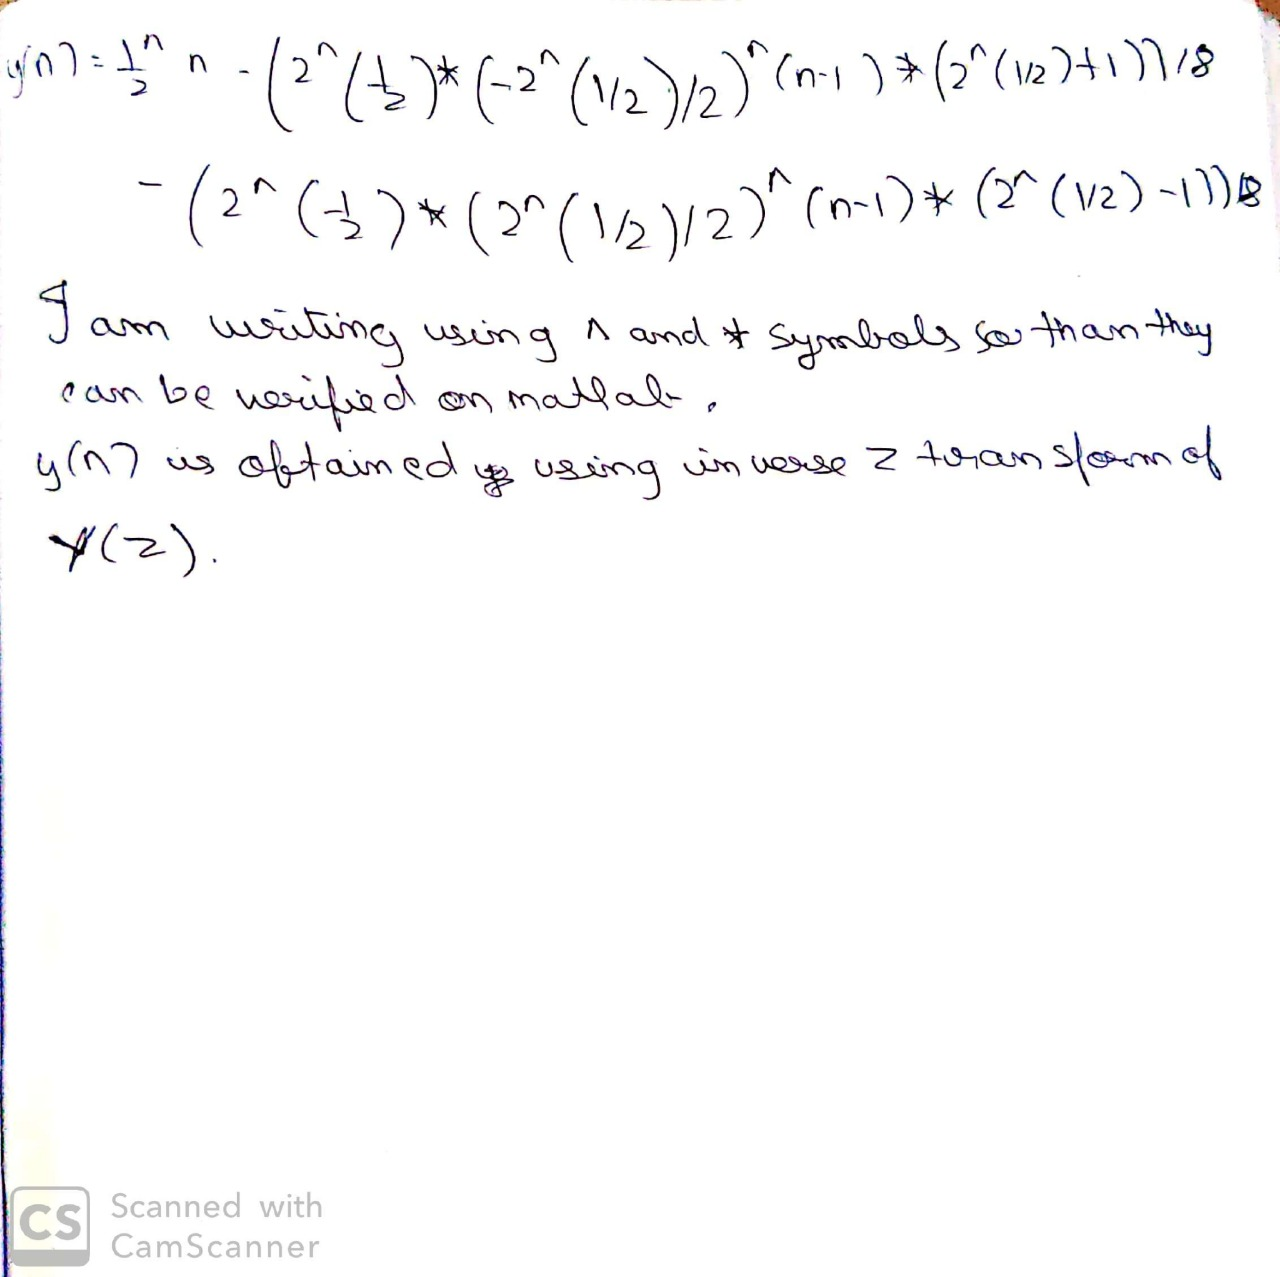 y(n) = 1/2^n n - (2^(1/2)*(-2^(1/2)/2)^(n-1)*(2^(1/2)+1))/8
- (2^(1/2)*(2^(1/2)/2)^(n-1)*(2^(1/2)-1))/8
I am writing using ^ and * symbols so than they
can be verified on matlab.
y(n) is obtained using inverse z transform of
Y(z).
CS Scanned with
CamScanner